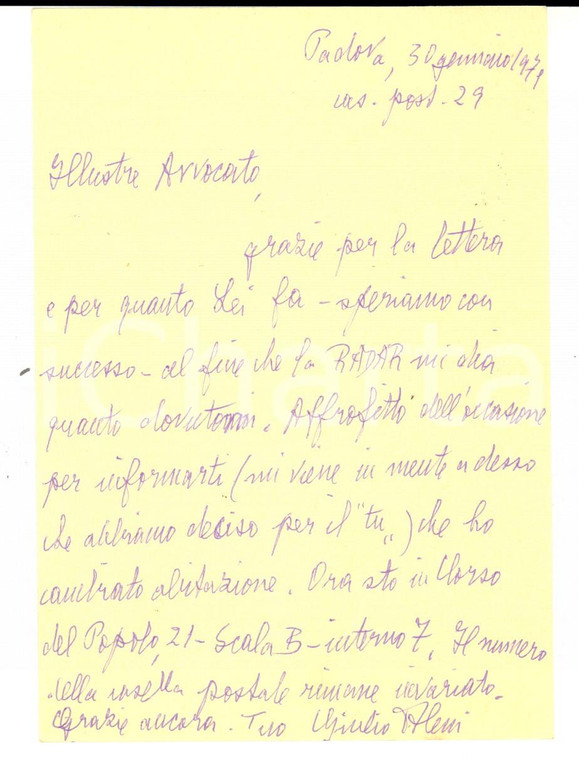 Padova, 30 gennaio 1971
cas. post. 29
Illustre Avvocato,
grazie per la lettera
e per quanto Lei fa - speriamo con
successo - al fine che la RADAR mi dia
quanto dovutomi. Approfitto dell'occasione
per informarti (mi viene in mente adesso
che abbiamo deciso per il "tu") che ho
cambiato abitazione. Ora sto in Corso
del Popolo, 21 - Scala B - interno 7. Il numero
della casella postale rimane invariato.
Grazie ancora. Tuo Giulio Alessi